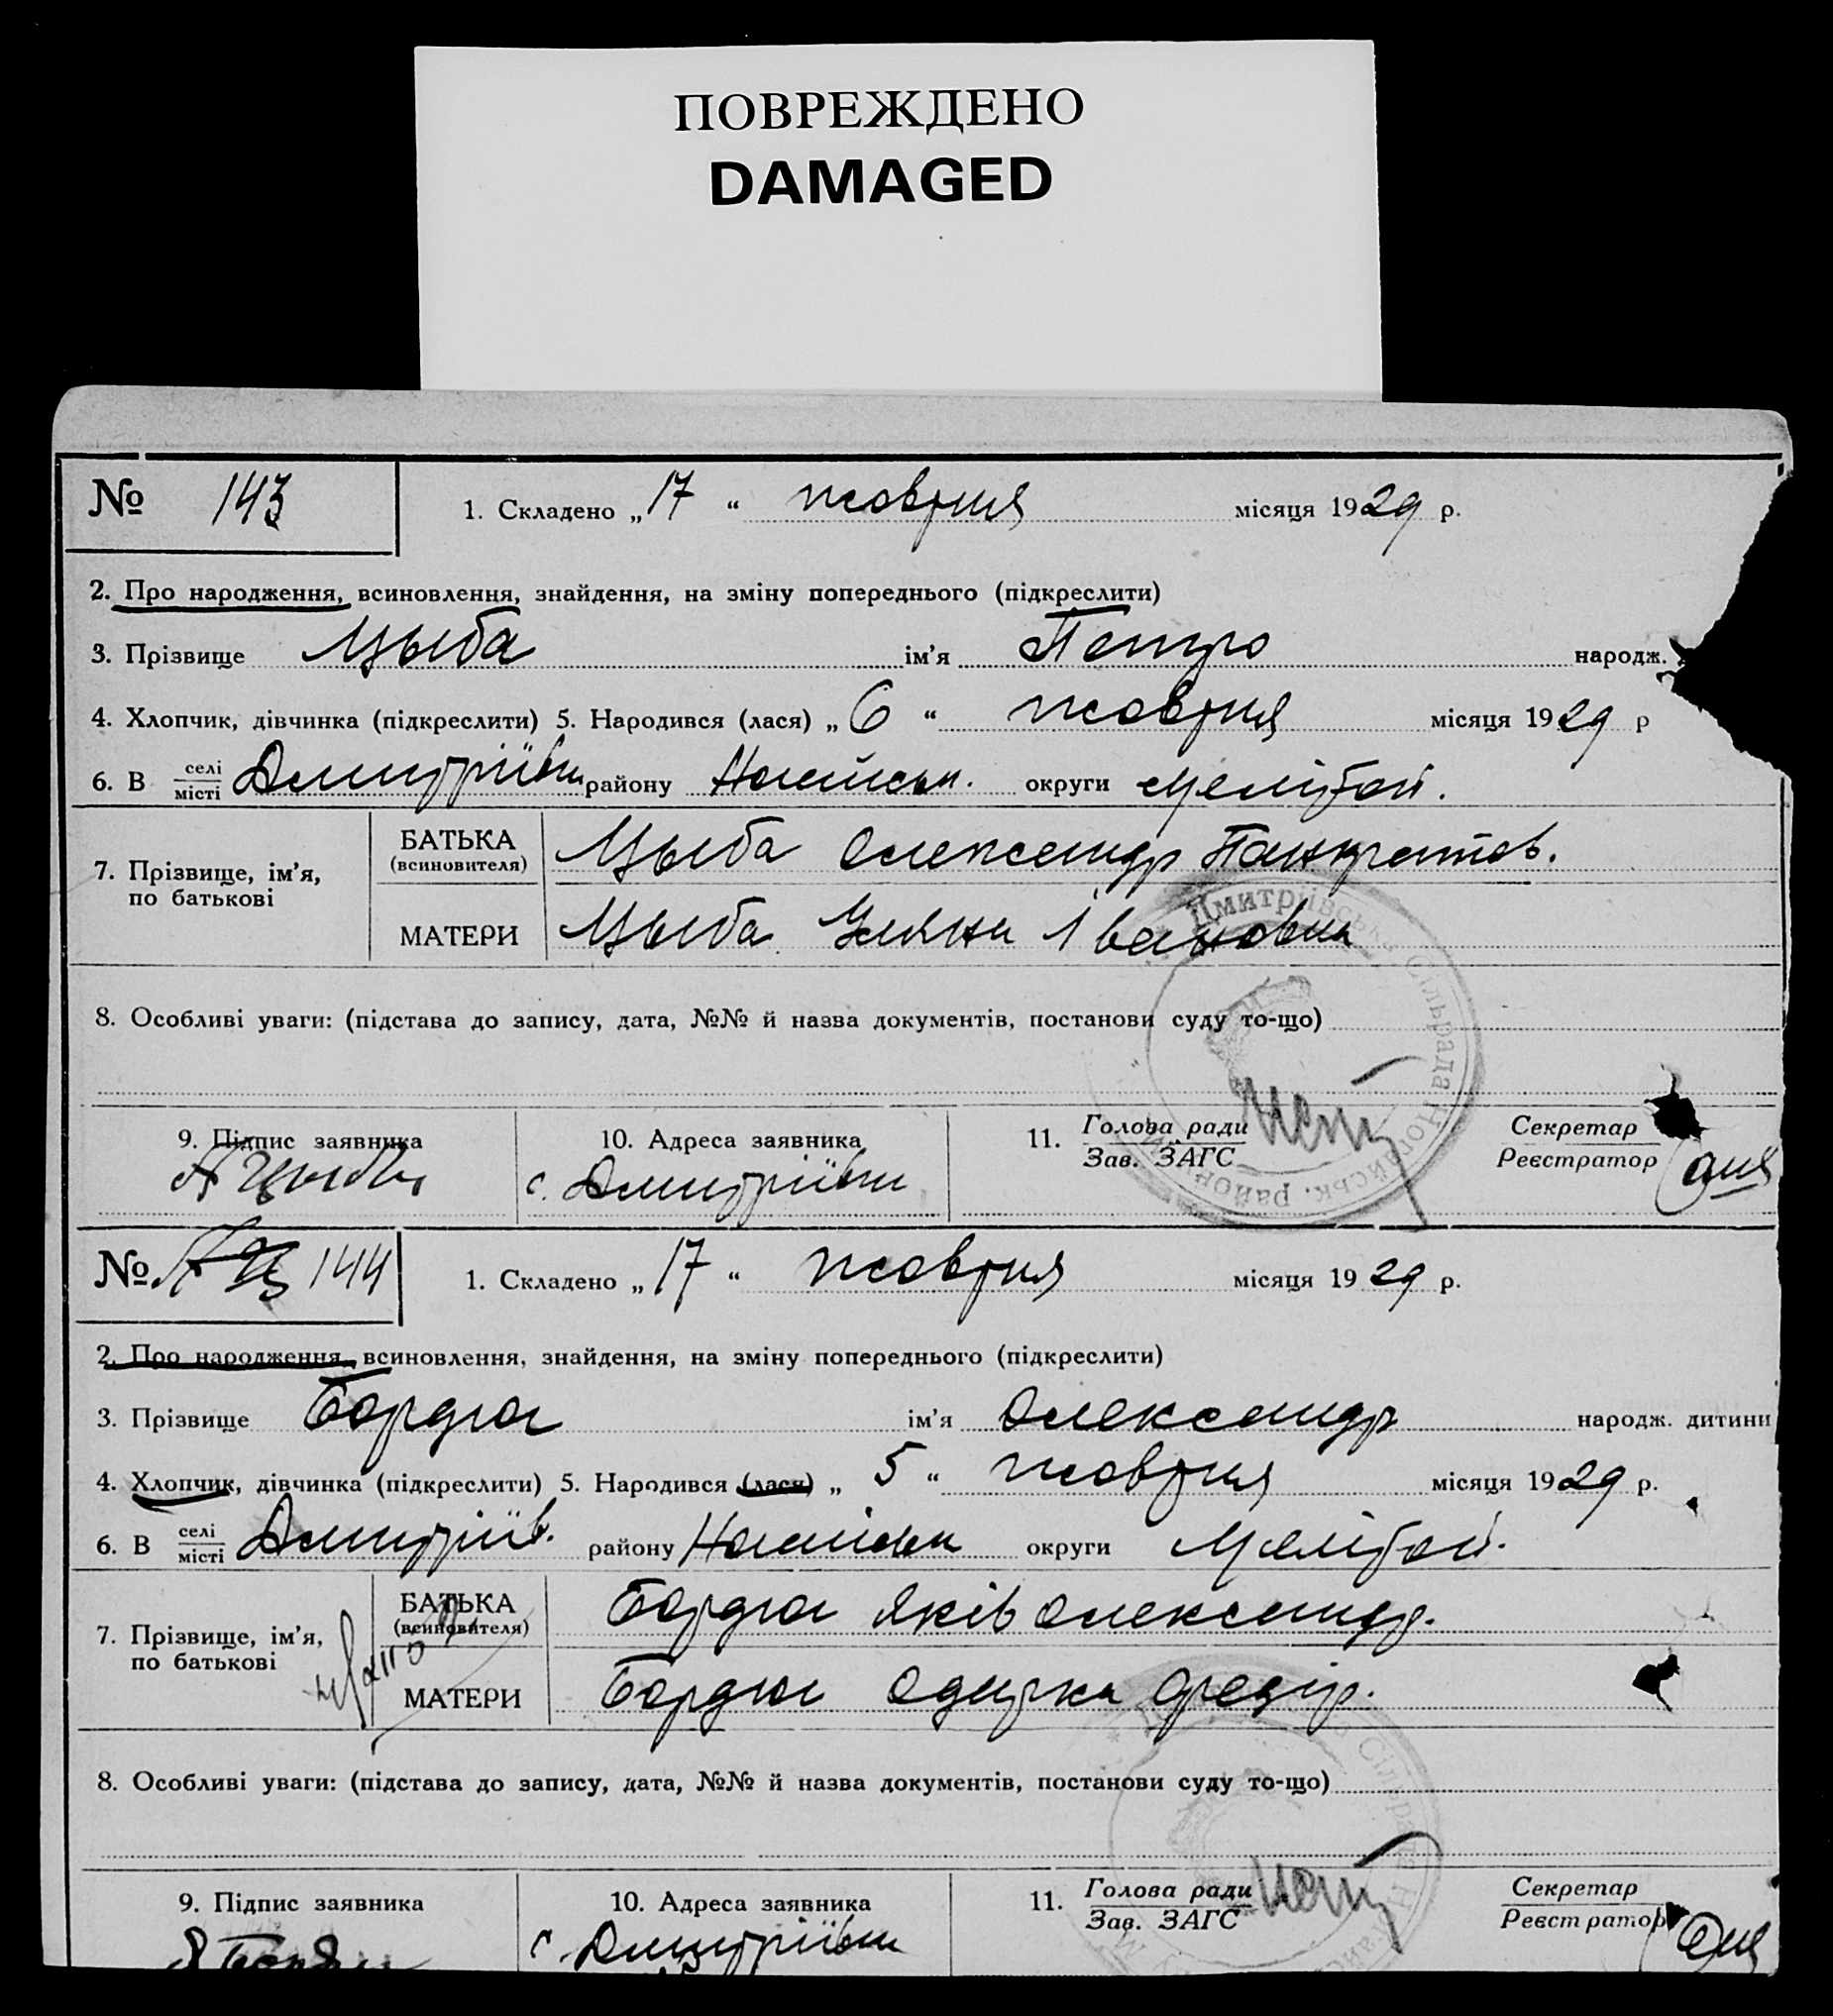 ПОВРЕЖДЕНО
DAMAGED
№ 143
1. Складено „17“ жовтня місяця 1929 р.
2. Про народження, всиновлення, знайдення, на зміну попереднього (підкреслити)
3. Прізвище Цыба ім’я Петро народж.
4. Хлопчик, дівчинка (підкреслити) 5. Народився (лася) „6“ жовтня місяця 1929 р
6. В селі місті Дмитріївки району округи Мелітоп.
7. Прізвище, ім’я, по батькові
БАТЬКА (всиновителя) Цыба Олександр Панкратов.
МАТЕРИ Цыба Уляна Івановна
8. Особливі уваги: (підстава до запису, дата, №№ й назва документів, постанови суду то-що)
Дмитріївська Сільрада Ногайськ. район
9. Підпис заявника
А Цыба
10. Адреса заявника
с. Дмитріївки
11. Голова ради
Зав. ЗАГС
Секретар
Реєстратор
№ 144
1. Складено „17“ жовтня місяця 1929 р.
2. Про народження, всиновлення, знайдення, на зміну попереднього (підкреслити)
3. Прізвище Бордюг ім’я Олександр народж. дитини
4. Хлопчик, дівчинка (підкреслити) 5. Народився (лася) „5“ жовтня місяця 1929 р.
6. В селі місті Дмитріїв. району округи Мелітоп.
7. Прізвище, ім’я, по батькові
БАТЬКА (всиновителя) Бордюг Яків Олександр.
МАТЕРИ Бордюг
8. Особливі уваги: (підстава до запису, дата, №№ й назва документів, постанови суду то-що)
9. Підпис заявника
10. Адреса заявника
с. Дмитріївки
11. Голова ради
Зав. ЗАГС
Секретар
Реєстратор